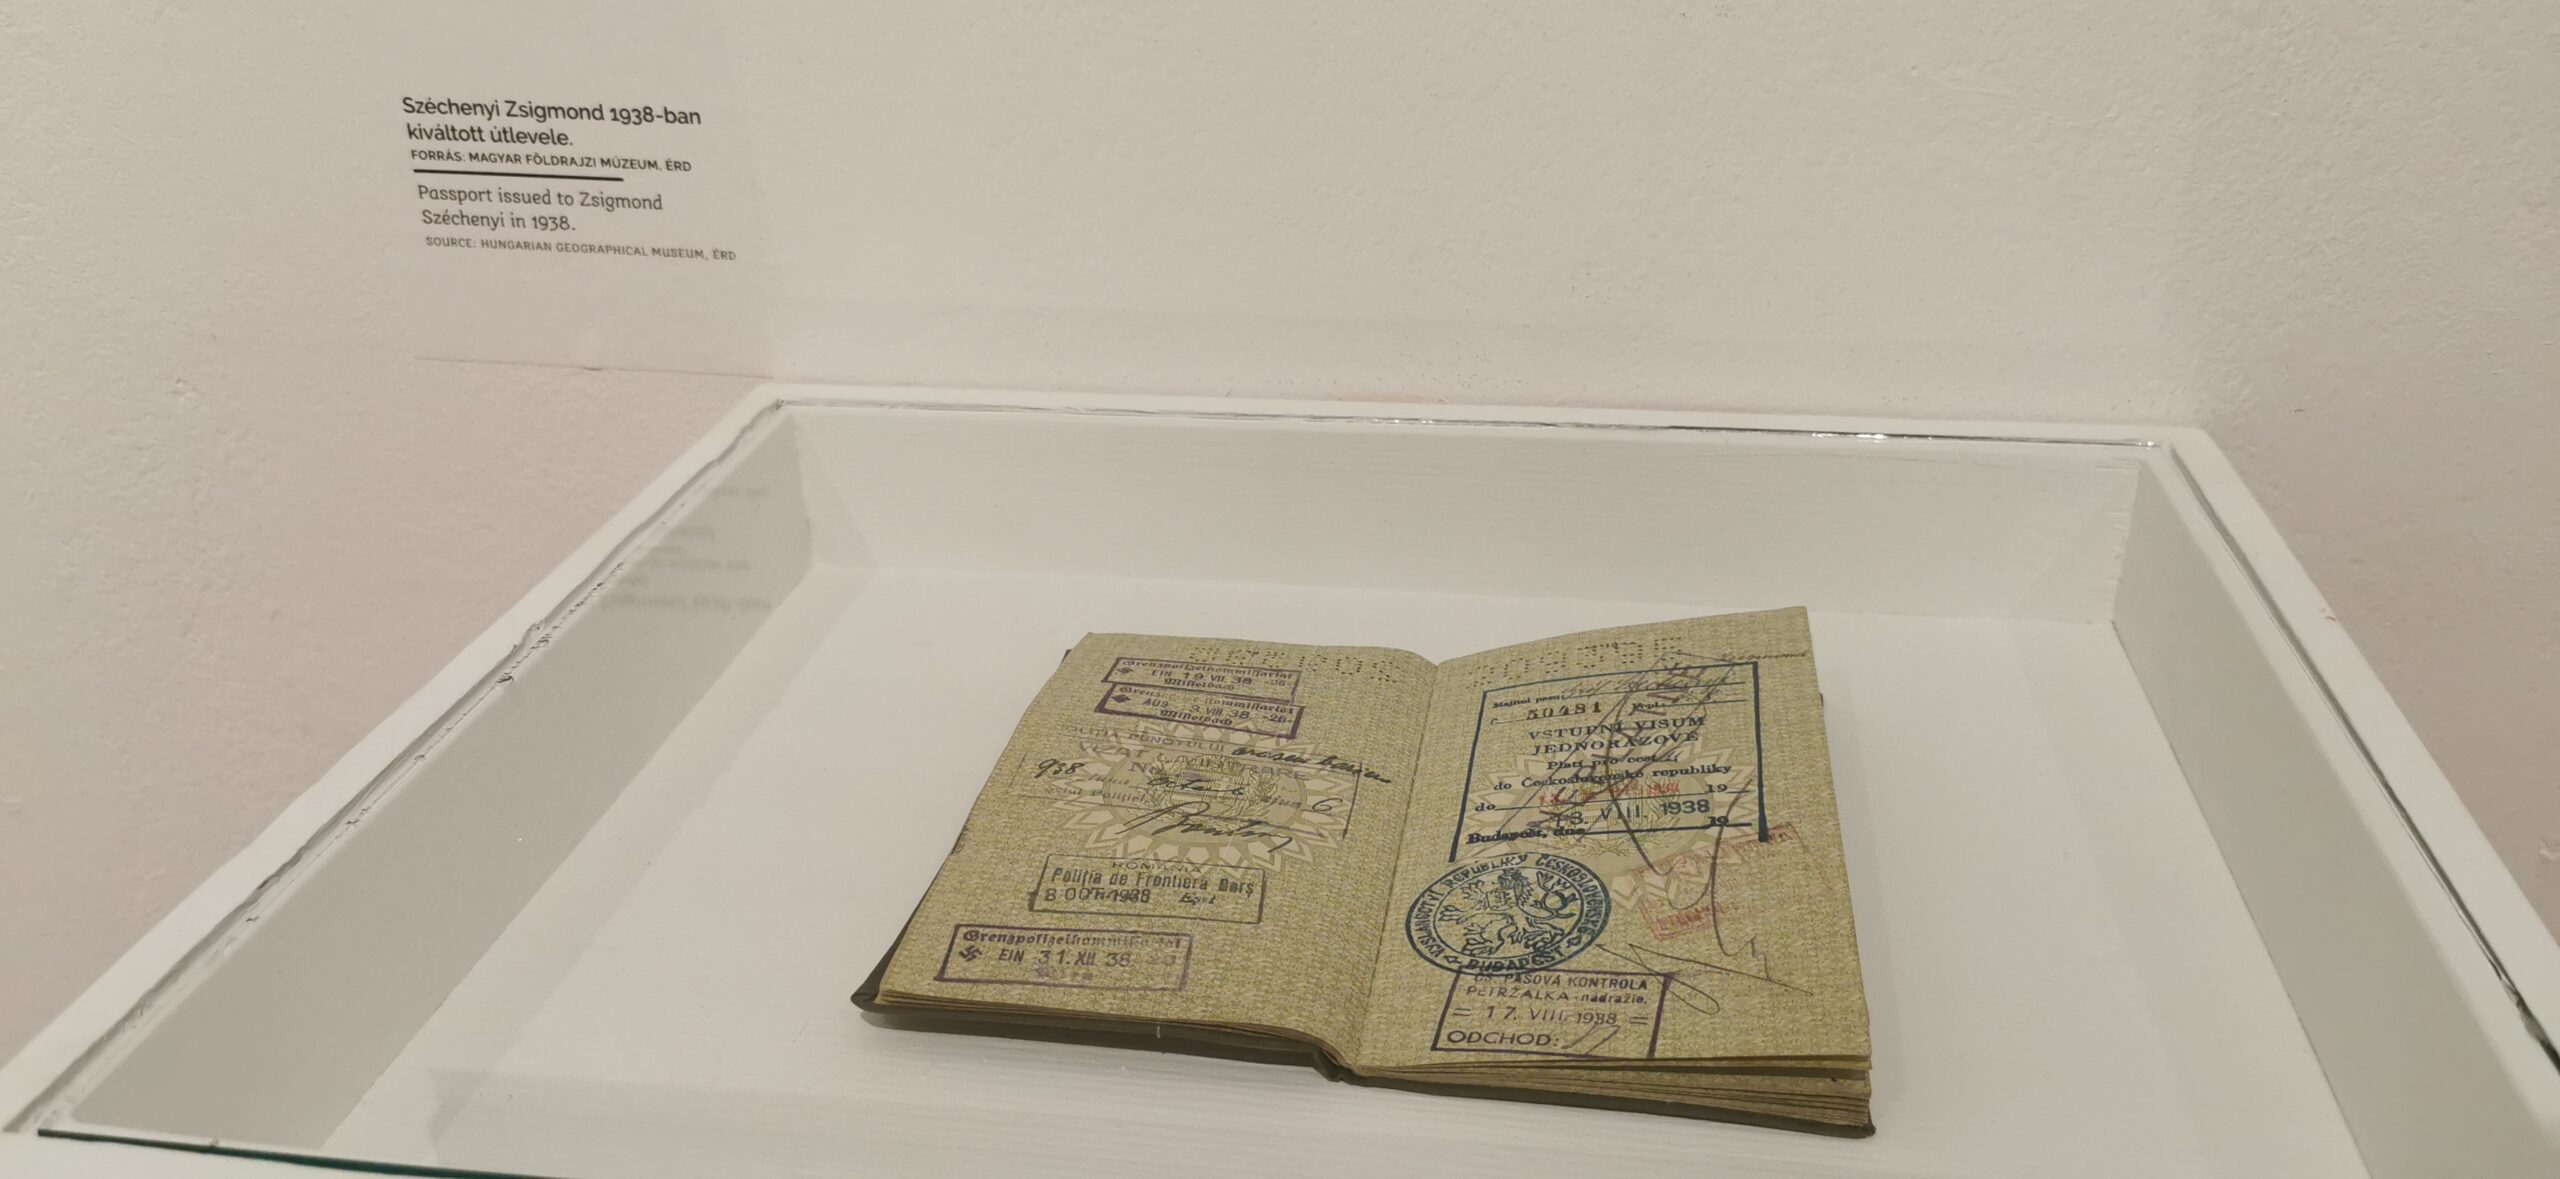 Széchenyi Zsigmond 1938-ban
kiváltott útlevele.
FORRÁS: MAGYAR FÖLDRAJZI MÚZEUM, ÉRD
Passport issued to Zsigmond
Széchenyi in 1938.
SOURCE: HUNGARIAN GEOGRAPHICAL MUSEUM, ÉRD
Grenzpolizeikommissariat
EIN 19. VII. 38
Mistelbach
Grenzpolizeikommissariat
AUS 3. VIII. 38 -26-
Mistelbach
POLIȚIA PUNCTULUI
No
938 6
ROMANIA
Poliția de Frontieră Borș
8 OCT. 1938
Grenzpolizeikommissariat
EIN 31. XII. 38
50481
VSTUPNÍ VISUM
JEDNORÁZOVÉ
Platí pro cestu
do Československé republiky
do 19
13. VIII. 1938
Budapest, dne 19
VYSLANECTVÍ REPUBLIKY ČESKOSLOVENSKÉ
BUDAPEŠŤ
ČS. PASOVÁ KONTROLA
PETRŽALKA-nádražie.
= 17. VIII. 1938 =
ODCHOD: